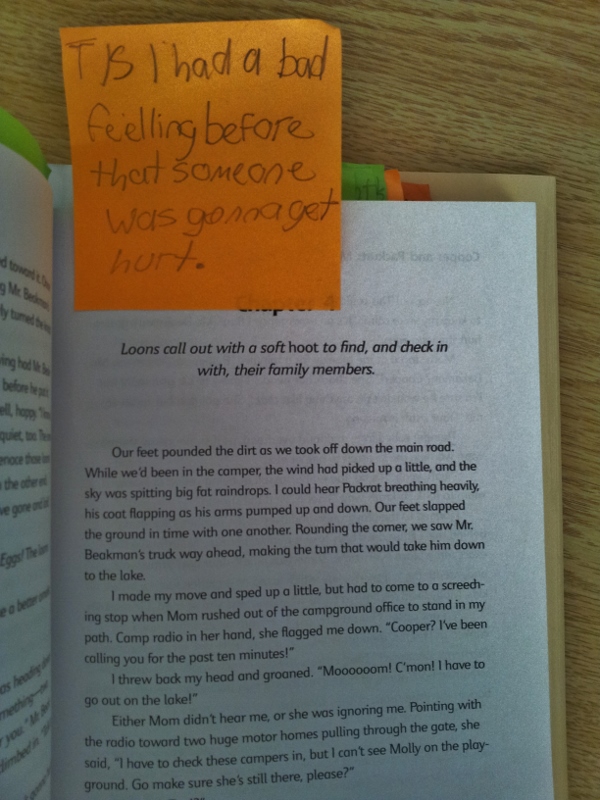 T/S I had a bad
feelling before
that someone
was gonna get
hurt.
btk
Cooper and Packrat: M
Chapter 4
Loons call out with a soft hoot to find, and check in
with, their family members.
Our feet pounded the dirt as we took off down the main road.
While we'd been in the camper, the wind had picked up a little, and the
sky was spitting big fat raindrops. I could hear Packrat breathing heavily,
his coat flapping as his arms pumped up and down. Our feet slapped
the ground in time with one another. Rounding the corner, we saw Mr.
Beakman's truck way ahead, making the turn that would take him down
to the lake.
I made my move and sped up a little, but had to come to a screech-
ing stop when Mom rushed out of the campground office to stand in my
path. Camp radio in her hand, she flagged me down. "Cooper? I've been
calling you for the past ten minutes!"
I threw back my head and groaned. "Moooooom! C'mon! I have to
go out on the lake!"
Either Mom didn't hear me, or she was ignoring me. Pointing with
the radio toward two huge motor homes pulling through the gate, she
said, "I have to check these campers in, but I can't see Molly on the play-
ground. Go make sure she's still there, please?"